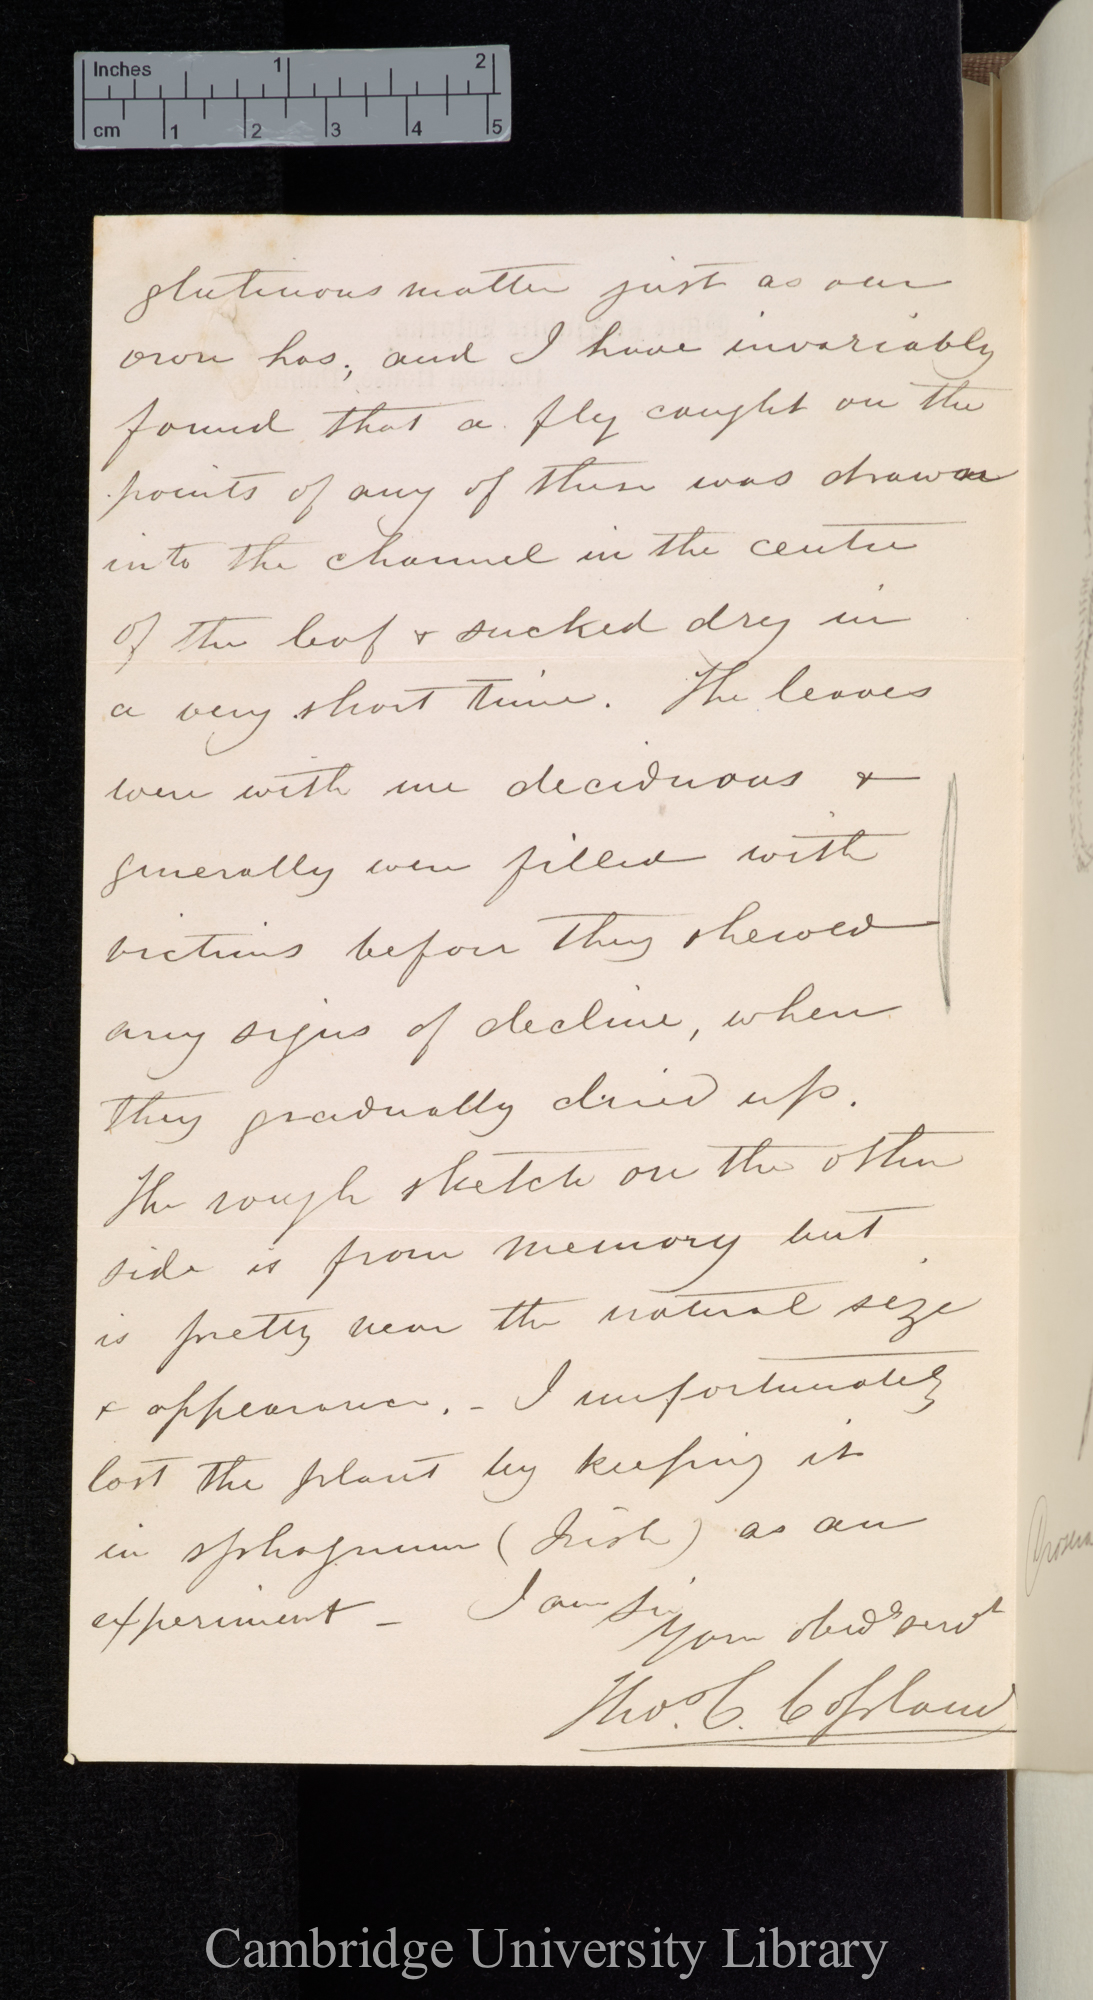 Inches 1 2
cm 1 2 3 4 5
glutinous matter just as our
own has; and I have invariably
found that a fly caught on the
points of any of these was drawn
into the channel in the centre
of the leaf & sucked dry in
a very short time. The leaves
were with me deciduous &
generally were filled with
victims before they shewed
any signs of decline, when
they gradually dried up.
The rough sketch on the other
side is from memory but
is pretty near the natural size
& appearance. - I unfortunately
lost the plant by keeping it
in sphagnum (Irish) as an
experiment - I am Sir
Your obedt servt
Thos. C. Copland
Cambridge University Library